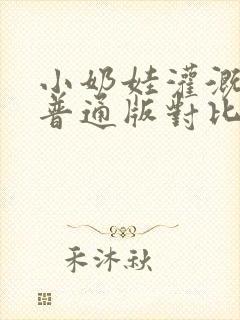 小奶娃灌溉
普通版對比
禾沐秋